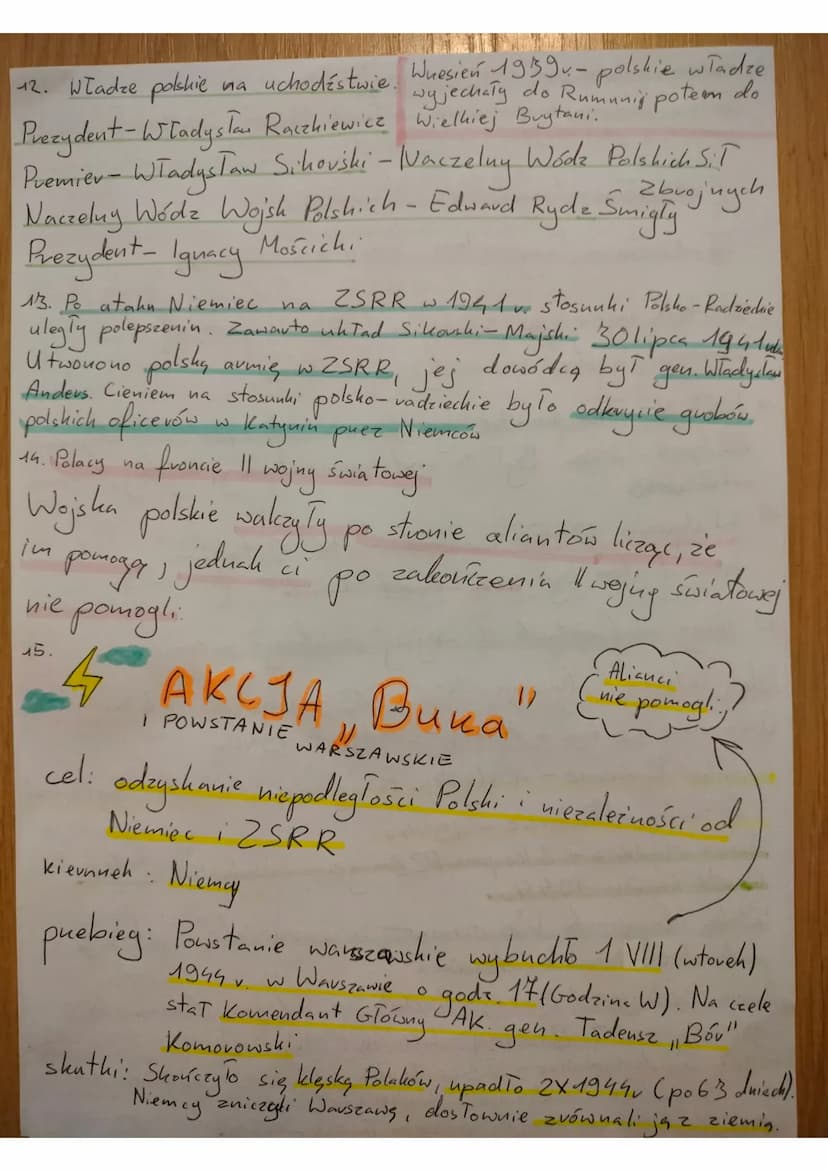 12. Władze polskie na uchodźstwie.
Wrzesień 1939r. - polskie władze
wyjechały do Rumunii potem do
Wielkiej Brytani.
Prezydent - Władysław Raczkiewicz
Premier - Władysław Sikorski - Naczelny Wódz Polskich Sił
Zbrojnych
Naczelny Wódz Wojsk Polskich - Edward Rydz Śmigły
Prezydent - Ignacy Mościcki
13. Po ataku Niemiec na ZSRR w 1941 r. stosunki Polsko-Radzieckie
uległy polepszeniu. Zawarto układ Sikorski-Majski 30 lipca 1941
Utworzono polską armię w ZSRR, jej dowódcą był gen. Władysław
Anders. Cieniem na stosunki polsko-radzieckie było odkrycie grobów
polskich oficerów w Katyniu przez Niemców
14. Polacy na froncie II wojny światowej
Wojska polskie walczyły po stronie aliantów licząc, że
im pomogą, jednak ci po zakończeniu II wojny światowej
nie pomogli.
15.
AKCJA „Burza"
I POWSTANIE WARSZAWSKIE
Alianci
nie pomogli
cel: odzyskanie niepodległości Polski i niezależności od
Niemiec i ZSRR
kierunek: Niemcy
przebieg: Powstanie warszawskie wybuchło 1 VIII (wtorek)
1944 r. w Warszawie o godz. 17 (Godzina W). Na czele
stał Komendant Główny AK. gen. Tadeusz „Bór"
Komorowski
skutki: Skończyło się klęską Polaków, upadło 2X1944r (po 63 dniach).
Niemcy zniczyli Warszawę, dosłownie zrównali ją z ziemią.